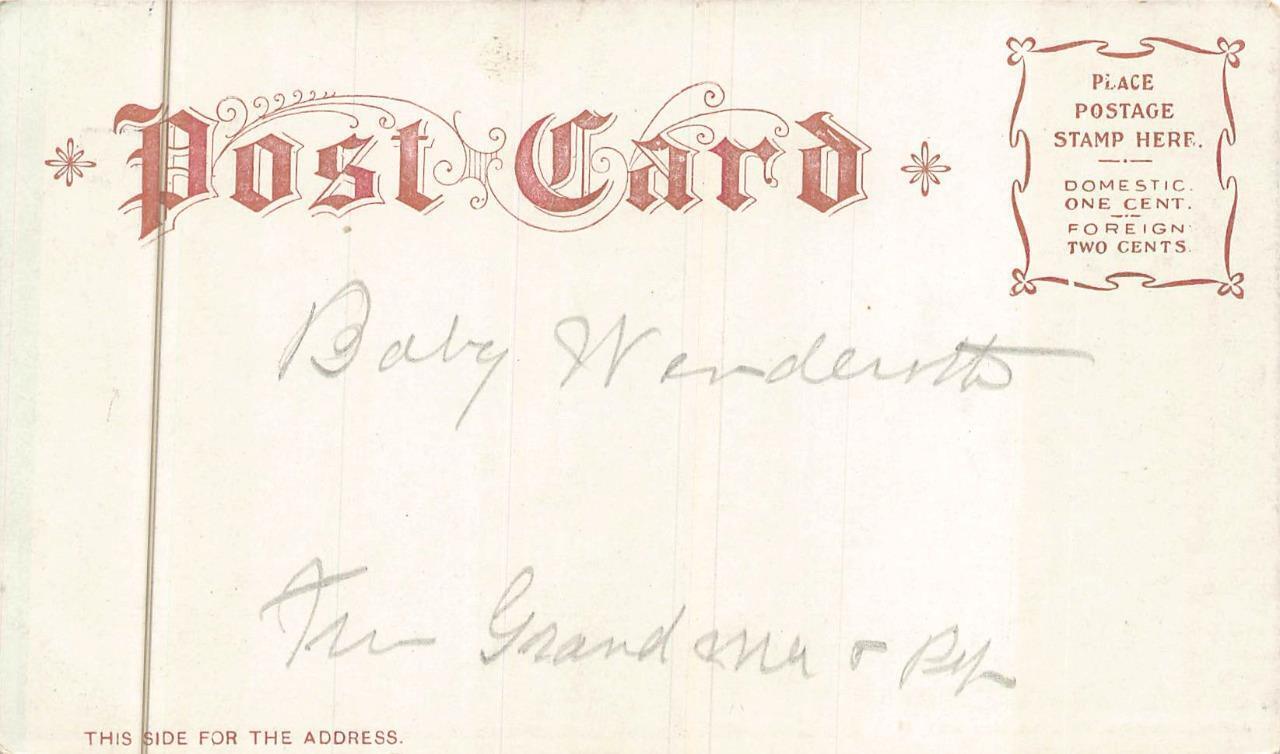 Post Card
PLACE
POSTAGE
STAMP HERE.
DOMESTIC.
ONE CENT.
FOREIGN
TWO CENTS.
Baby Wenderoth
Grand ma &
THIS SIDE FOR THE ADDRESS.